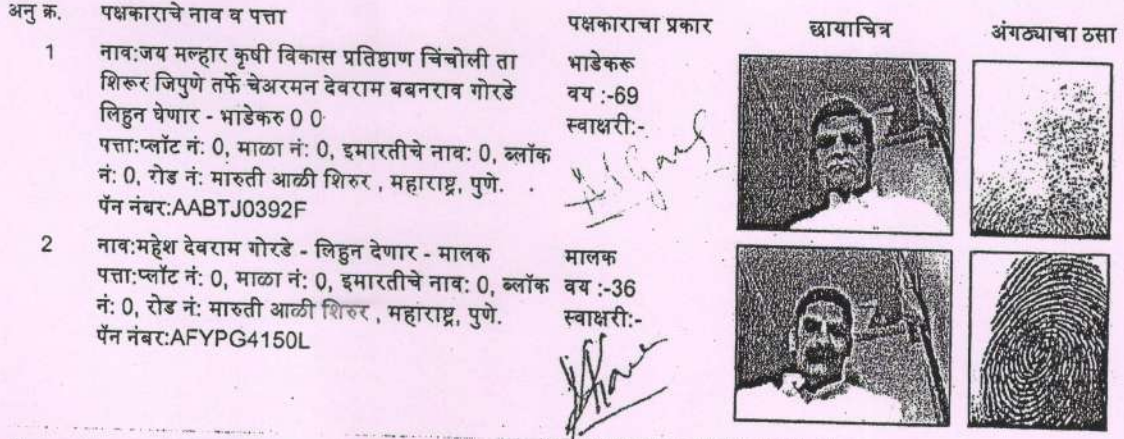 अनु क्र. पक्षकाराचे नाव व पत्ता पक्षकाराचा प्रकार छायाचित्र अंगठ्याचा ठसा
1 नाव:जय मल्हार कृषी विकास प्रतिष्ठाण चिंचोली ता भाडेकरू
शिरूर जिपुणे तर्फे चेअरमन देवराम बबनराव गोरडे वय :-69
लिहुन घेणार - भाडेकरु 0 0 स्वाक्षरी:-
पत्ता:प्लॉट नं: 0, माळा नं: 0, इमारतीचे नाव: 0, ब्लॉक
नं: 0, रोड नं: मारुती आळी शिरुर , महाराष्ट्र, पुणे.
पॅन नंबर:AABTJ0392F
2 नाव:महेश देवराम गोरडे - लिहुन देणार - मालक मालक
पत्ता:प्लॉट नं: 0, माळा नं: 0, इमारतीचे नाव: 0, ब्लॉक वय :-36
नं: 0, रोड नं: मारुती आळी शिरुर , महाराष्ट्र, पुणे. स्वाक्षरी:-
पॅन नंबर:AFYPG4150L